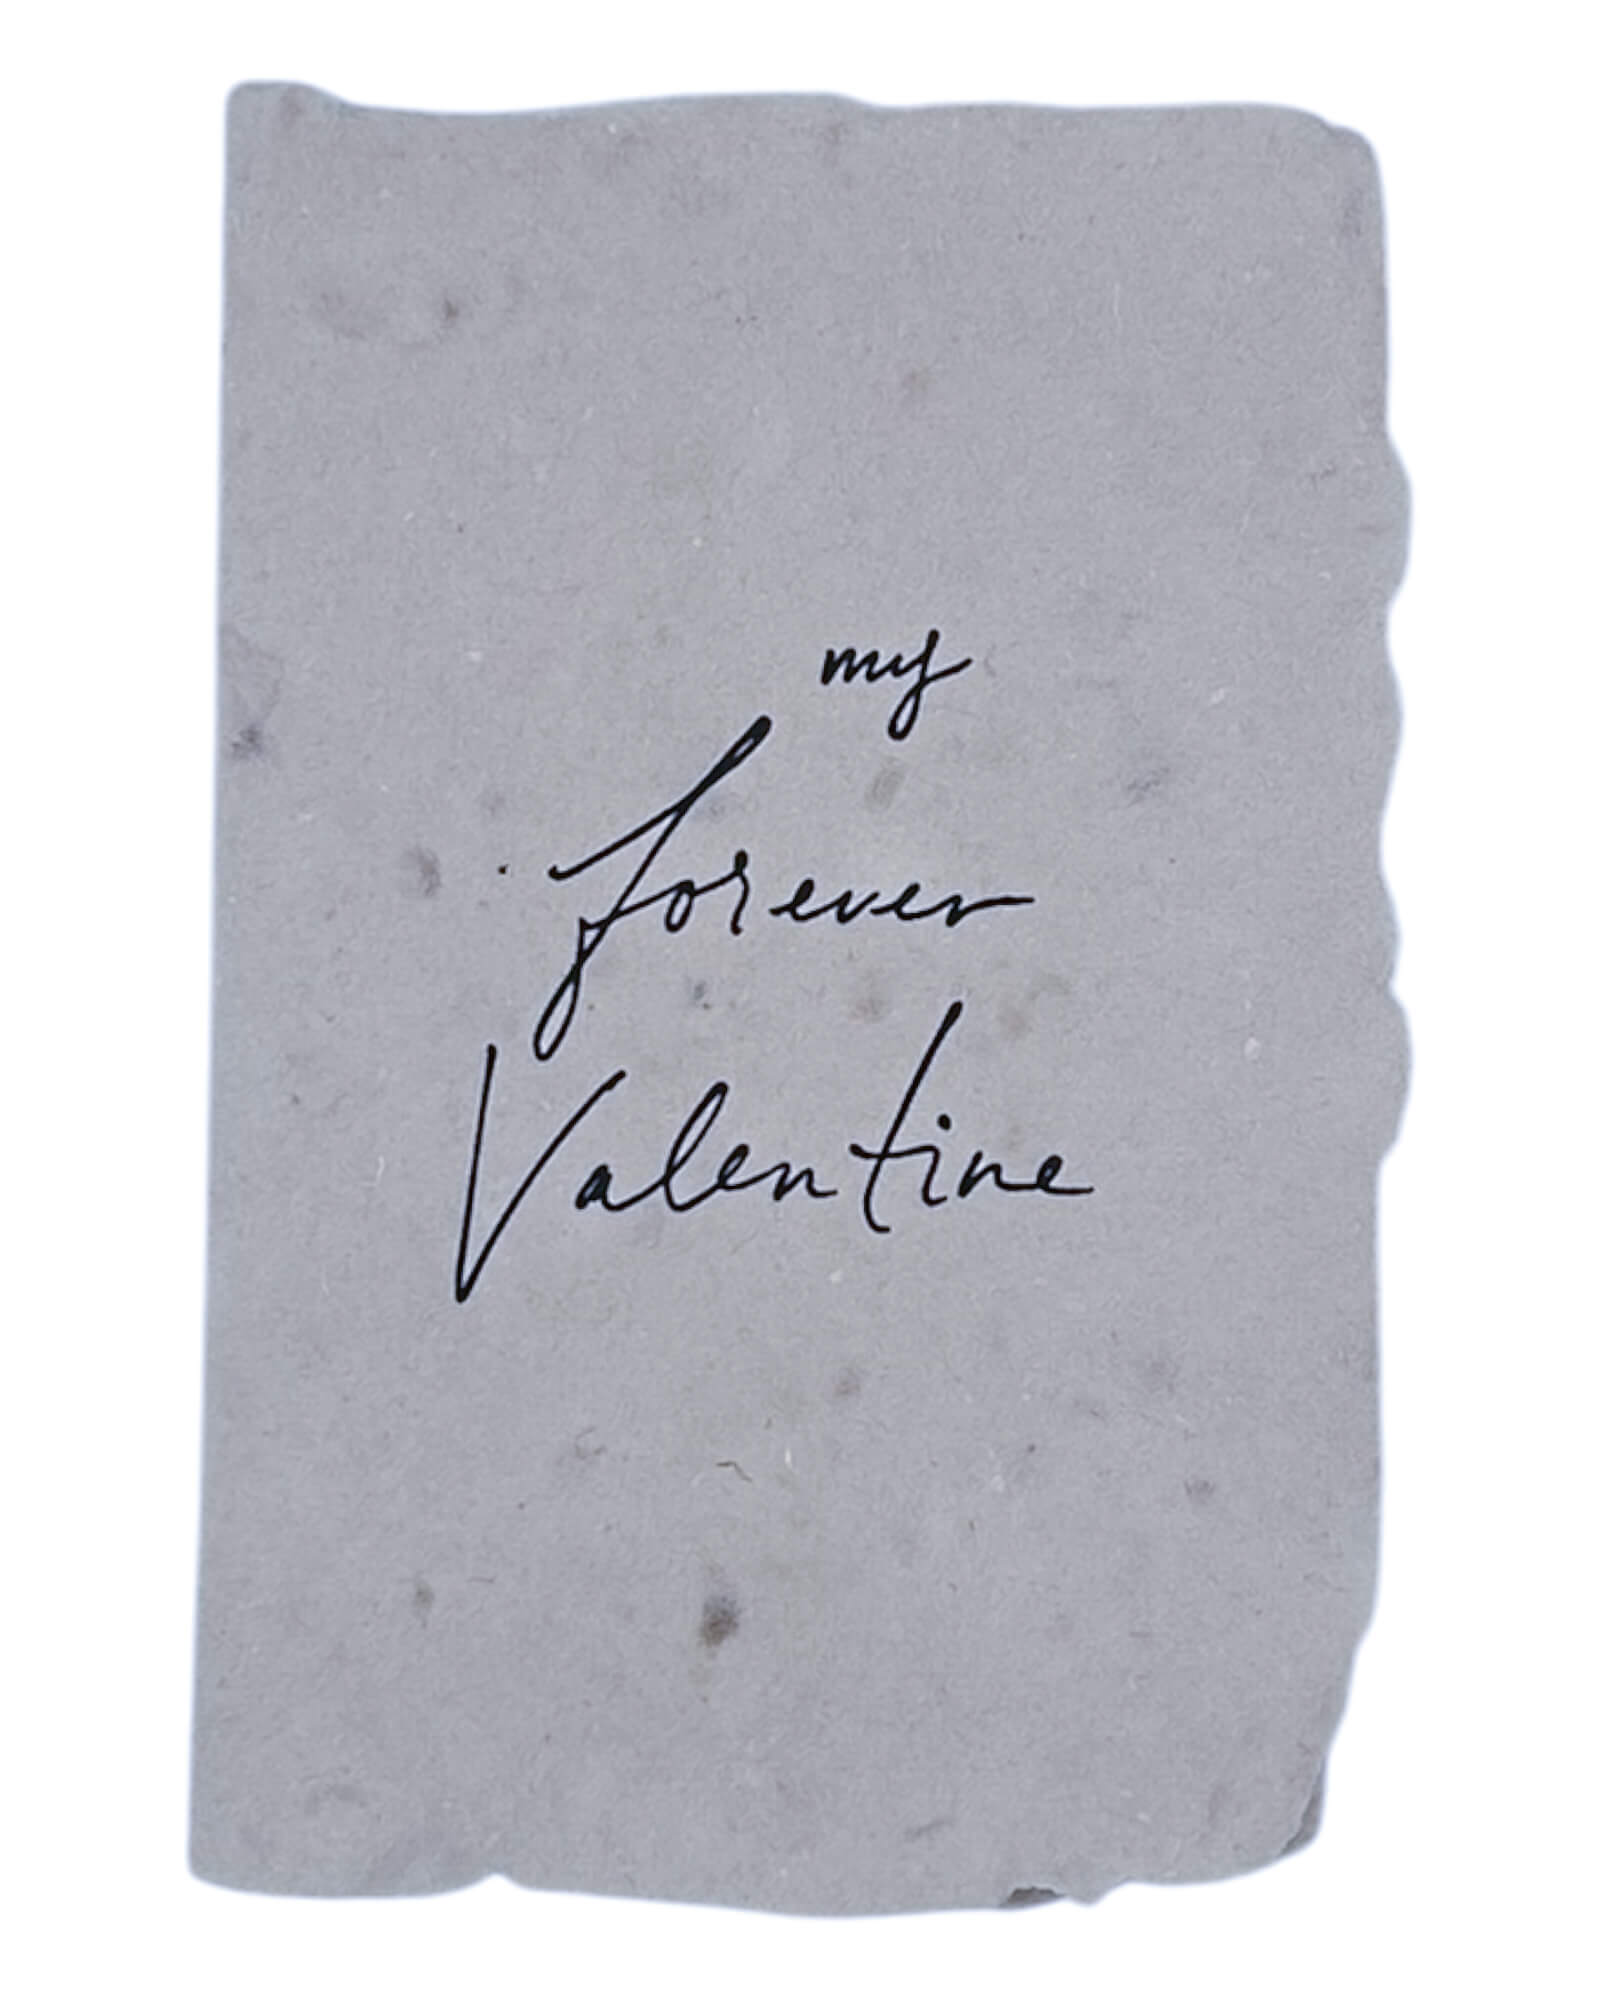 my
forever
Valentine